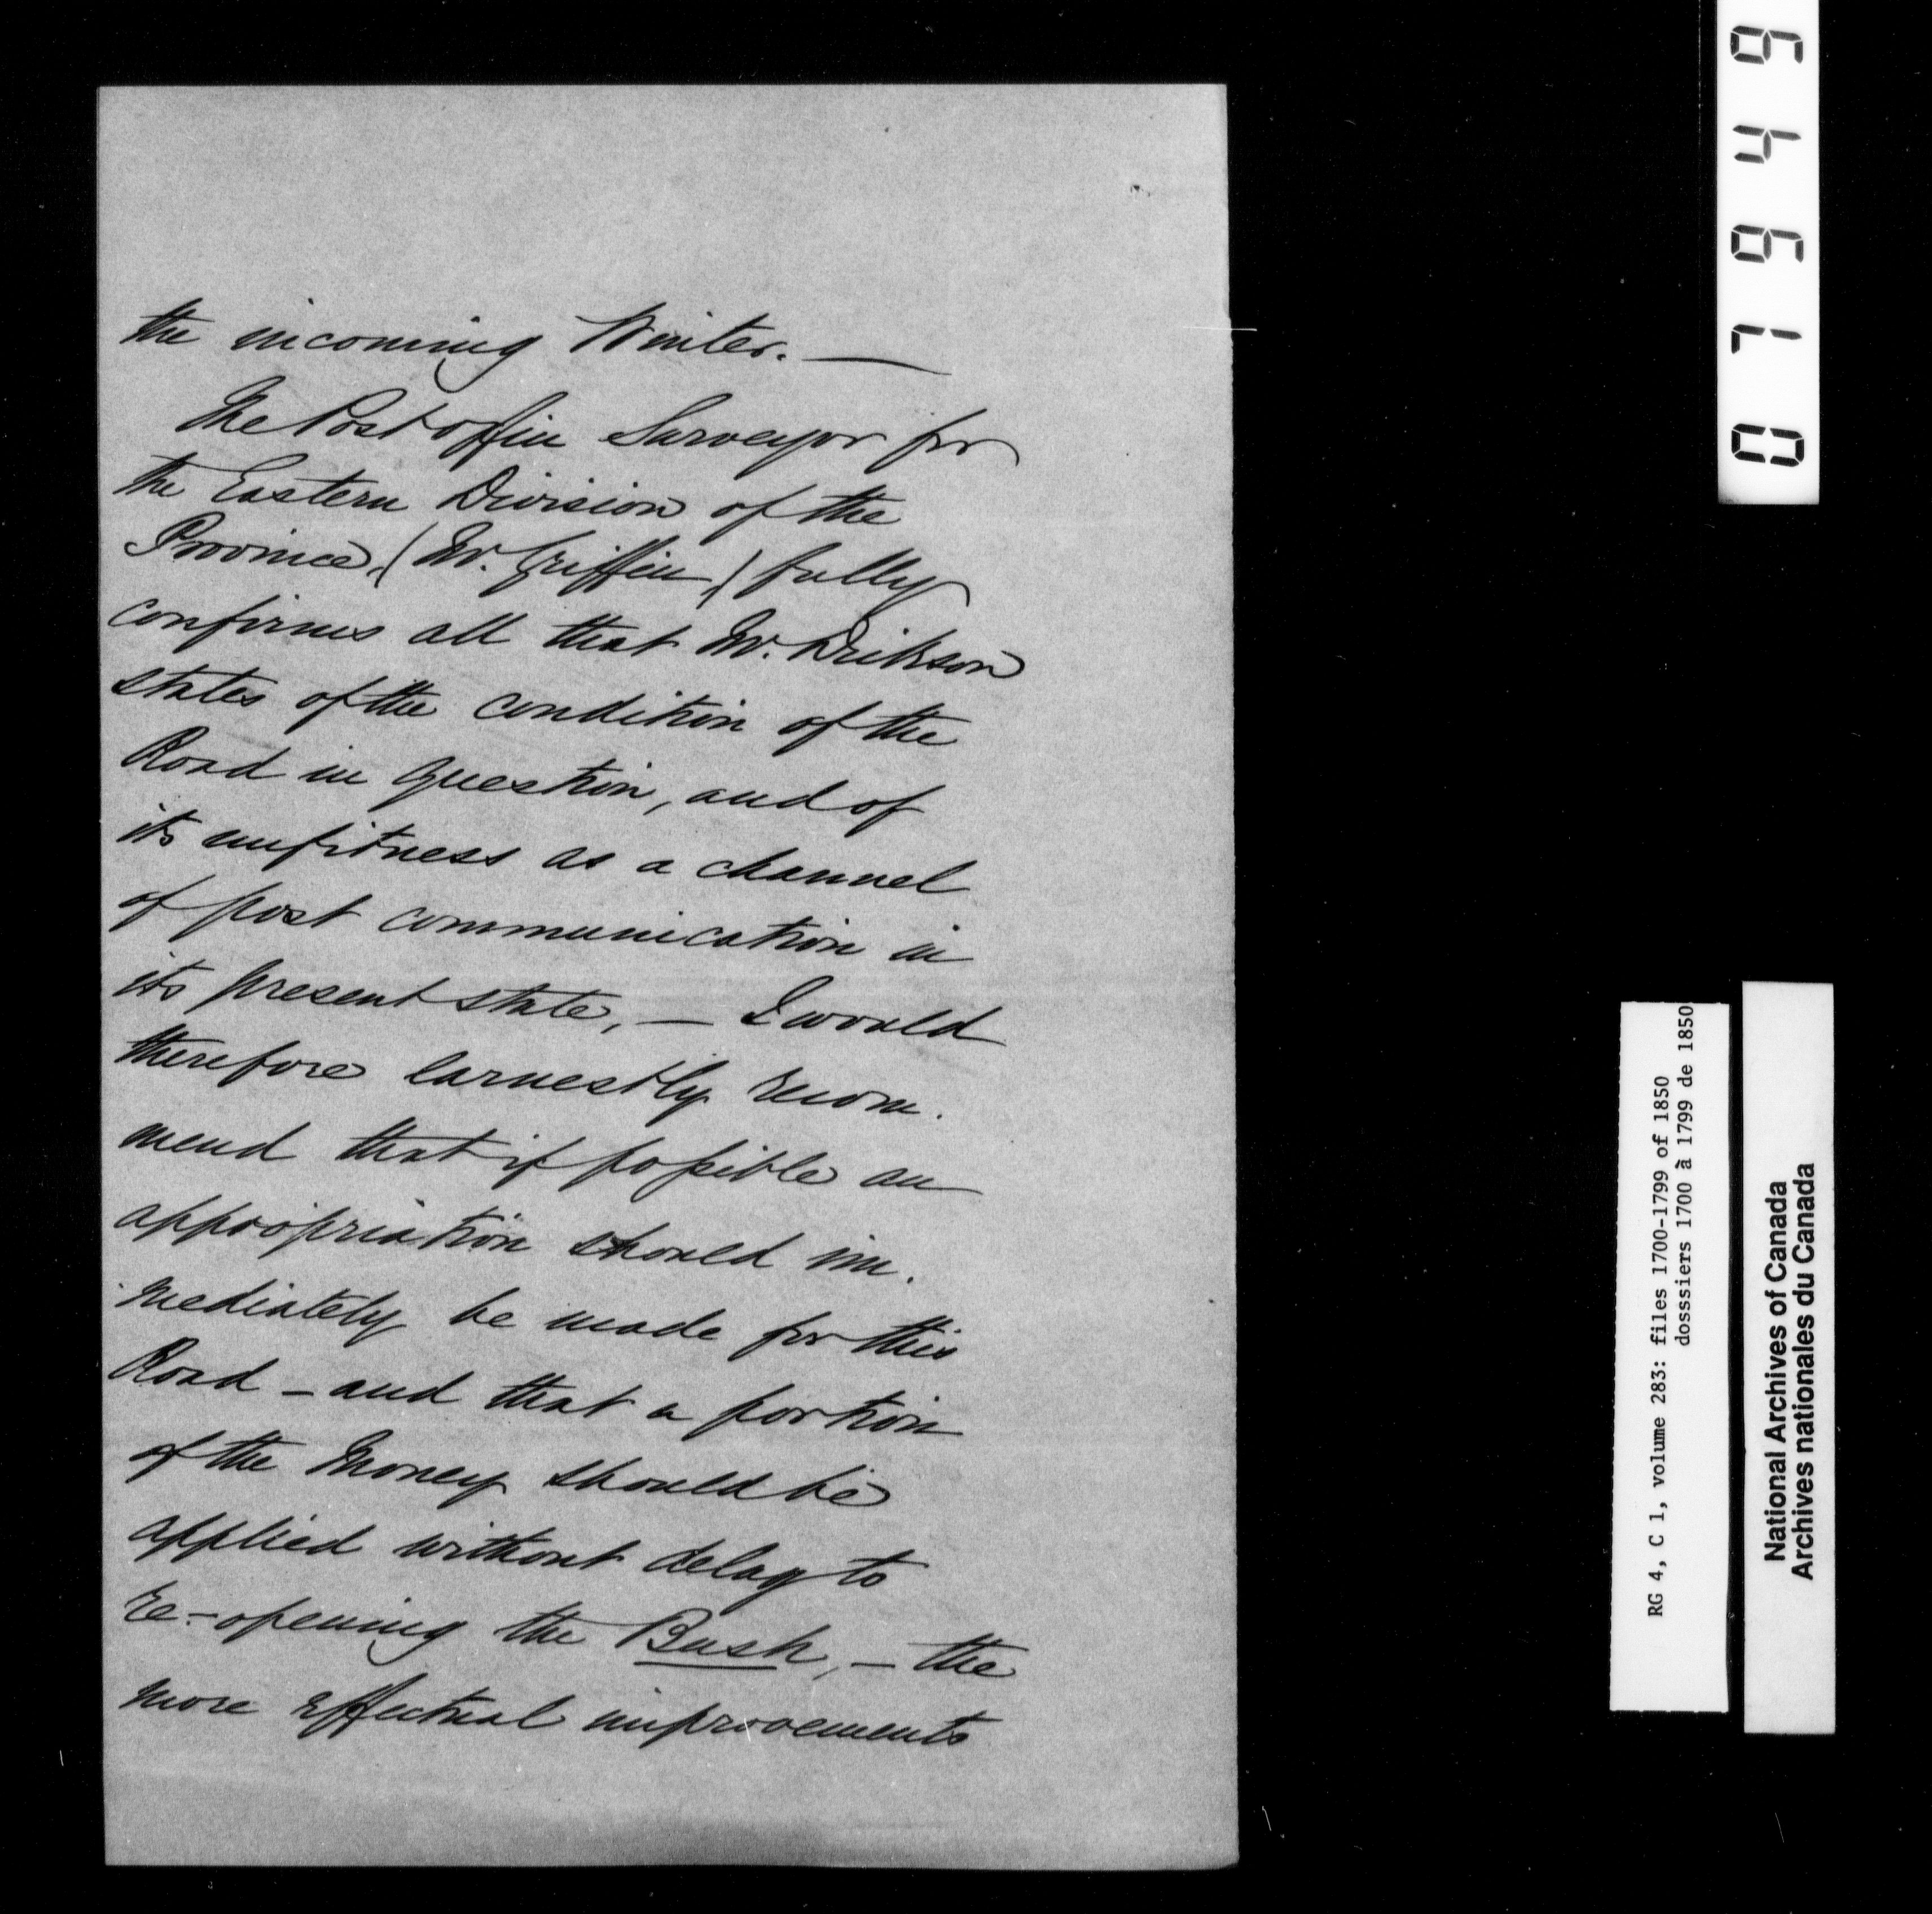 the incoming Winter. —
The Post office Surveyor for
the Eastern Division of the
Province, (Mr. Griffin) fully
confirms all that Mr.
states of the condition of the
Road in question, and of
its unfitness as a channel
of post communication in
its present state, — I would
therefore earnestly recom.
mend that if possible an
appropriation should im.
mediately be made for this
Road – and that a portion
of the Money should be
applied without delay to
re-opening the Bush, – the
more effectual improvements
07949
RG 4, C 1, volume 283: files 1700-1799 of 1850
dosssiers 1700 à 1799 de 1850
National Archives of Canada
Archives nationales du Canada